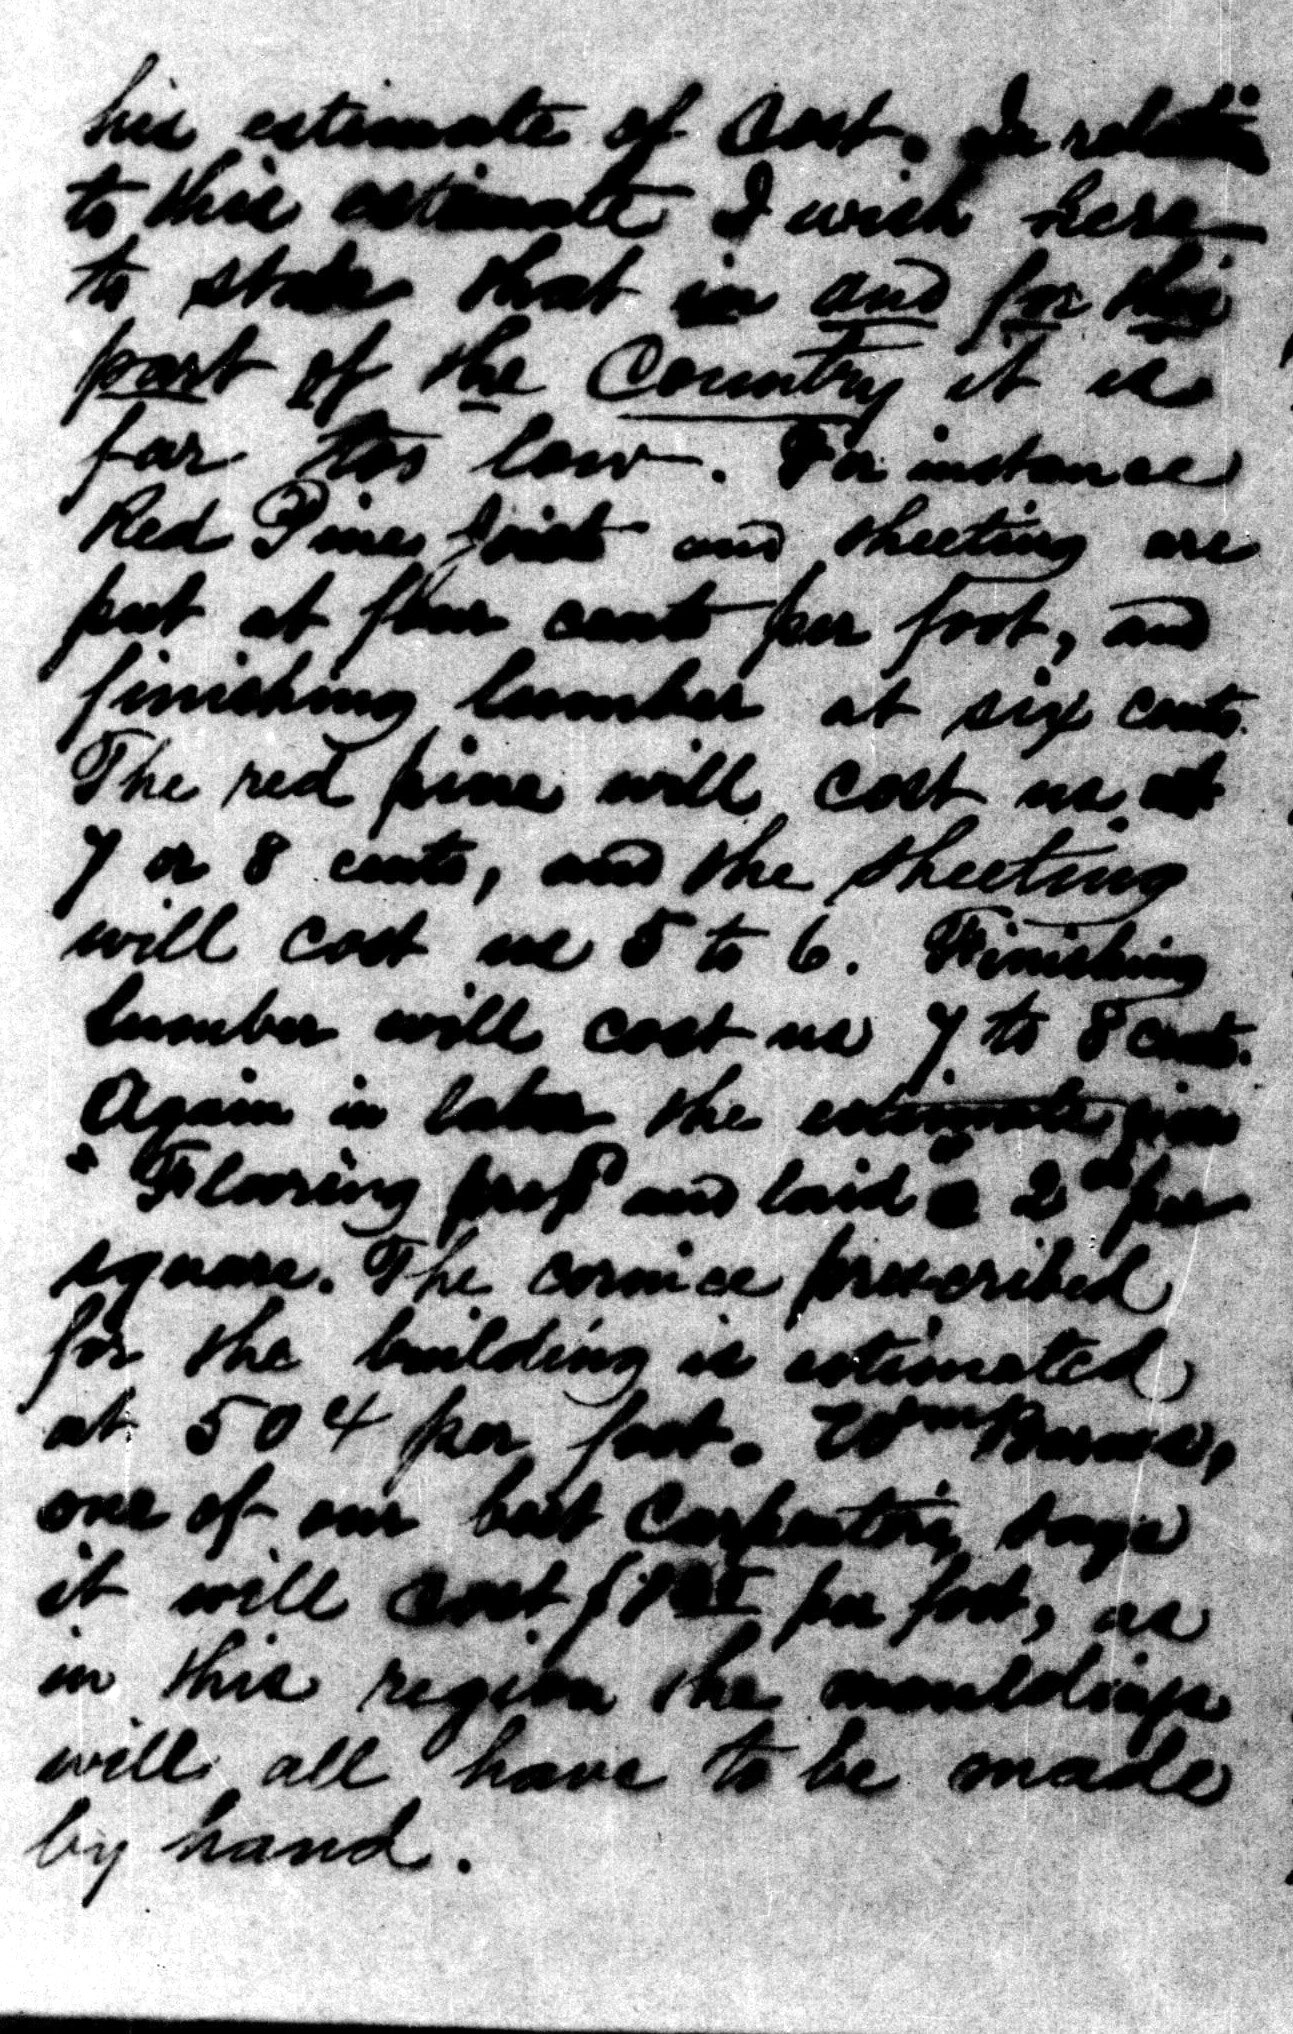 his estimate of Cost. In relation
to this estimate I wish here
to state that in and for this
part of the Country it is
far too low. For instance
Red Pine Joist and sheeting are
put at four cents per foot, and
finishing lumber at six cents.
The red pine will cost us at
7 or 8 cents, and the sheeting
will cost us 5 to 6. Finishing
lumber will cost us 7 to 8 cents.
Again in labor the estimate gives
"Flooring and laid 2 per
square. The cornice prescribed
for the building is estimated
at 50¢ per foot. Wm Burns,
one of our best Carpenters, says
it will cost per foot, as
in this region the mouldings
will all have to be made
by hand.